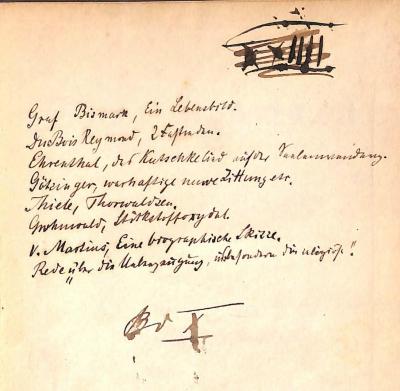 Graf Bismark, Ein Lebensbild.
DuBois Reymond, 2
Ehrenthal, das Kutschkelied auf der Seelenwanderung.
Götzinger, warhaftige nuwe Zittung etc.
Thiele, Thorwaldsen.
Grohnwald, Stickstoffoxydul.
v. Martius, Eine biographische Skizze.
Rede „über die Ueberzeugung, insbesondere die religiöse".
Bd X